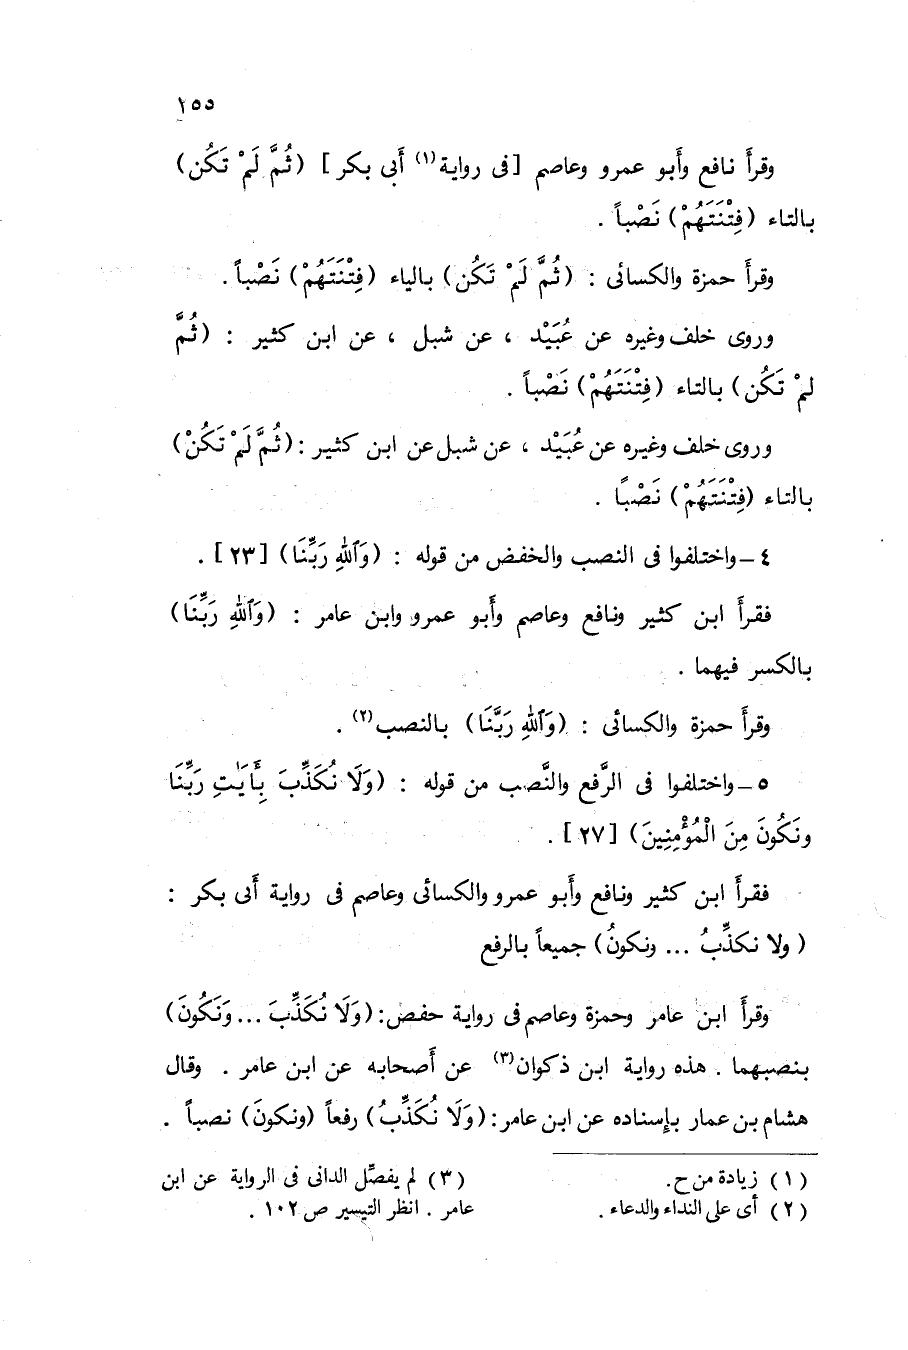 ٢٥٥
وقرأ نافع وأبو عمرو وعاصم [فى رواية(١) أبى بكر] (ثُمَّ لَمْ تَكُن)
بالتاء (فِتْنَتَهُمْ) نَصْباً .
وقرأ حمزة والكسائى : (ثُمَّ لَمْ تَكُن) بالياء (فِتْنَتَهُمْ) نَصْباً .
وروى خلف وغيره عن عُبَيْد ، عن شبل ، عن ابن كثير : (ثُمَّ
لمْ تَكُن) بالتاء (فِتْنَتَهُمْ) نَصْباً .
وروى خلف وغيره عن عُبَيْد ، عن شبل عن ابن كثير : (ثُمَّ لَمْ تَكُنْ)
بالتاء (فِتْنَتَهُمْ) نَصْبًا .
٤ – واختلفوا فى النصب والخفض من قوله : (وَٱللهِ رَبِّنَا) [٢٣] .
فقرأ ابن كثير ونافع وعاصم وأبو عمرو وابن عامر : (وَٱللهِ رَبِّنَا)
بالكسر فيهما .
وقرأ حمزة والكسائى : (وَٱللهِ رَبَّنَا) بالنصب(٢) .
٥ – واختلفوا فى الرَّفع والنَّصب من قوله : (وَلَا نُكَذِّبَ بِـَٔايَٰتِ رَبِّنَا
ونَكُونَ مِنَ الْمُؤْمِنِينَ) [٢٧] .
فقرأ ابن كثير ونافع وأبو عمرو والكسائى وعاصم فى رواية أبى بكر :
(ولا نكذِّبُ ... ونكونُ) جميعاً بالرفع
وقرأ ابن عامر وحمزة وعاصم فى رواية حفص : (وَلَا نُكَذِّبَ ... وَنَكُونَ)
بنصبهما . هذه رواية ابن ذكوان(٣) عن أصحابه عن ابن عامر . وقال
هشام بن عمار بإسناده عن ابن عامر : (وَلَا نُكَذِّبُ) رفعاً (ونكونَ) نصباً .
(١) زيادة من ح.
(٢) أى على النداء والدعاء .
(٣) لم يفصِّل الدانى فى الرواية عن ابن
عامر . انظر التيسير ص ١٠٢ .